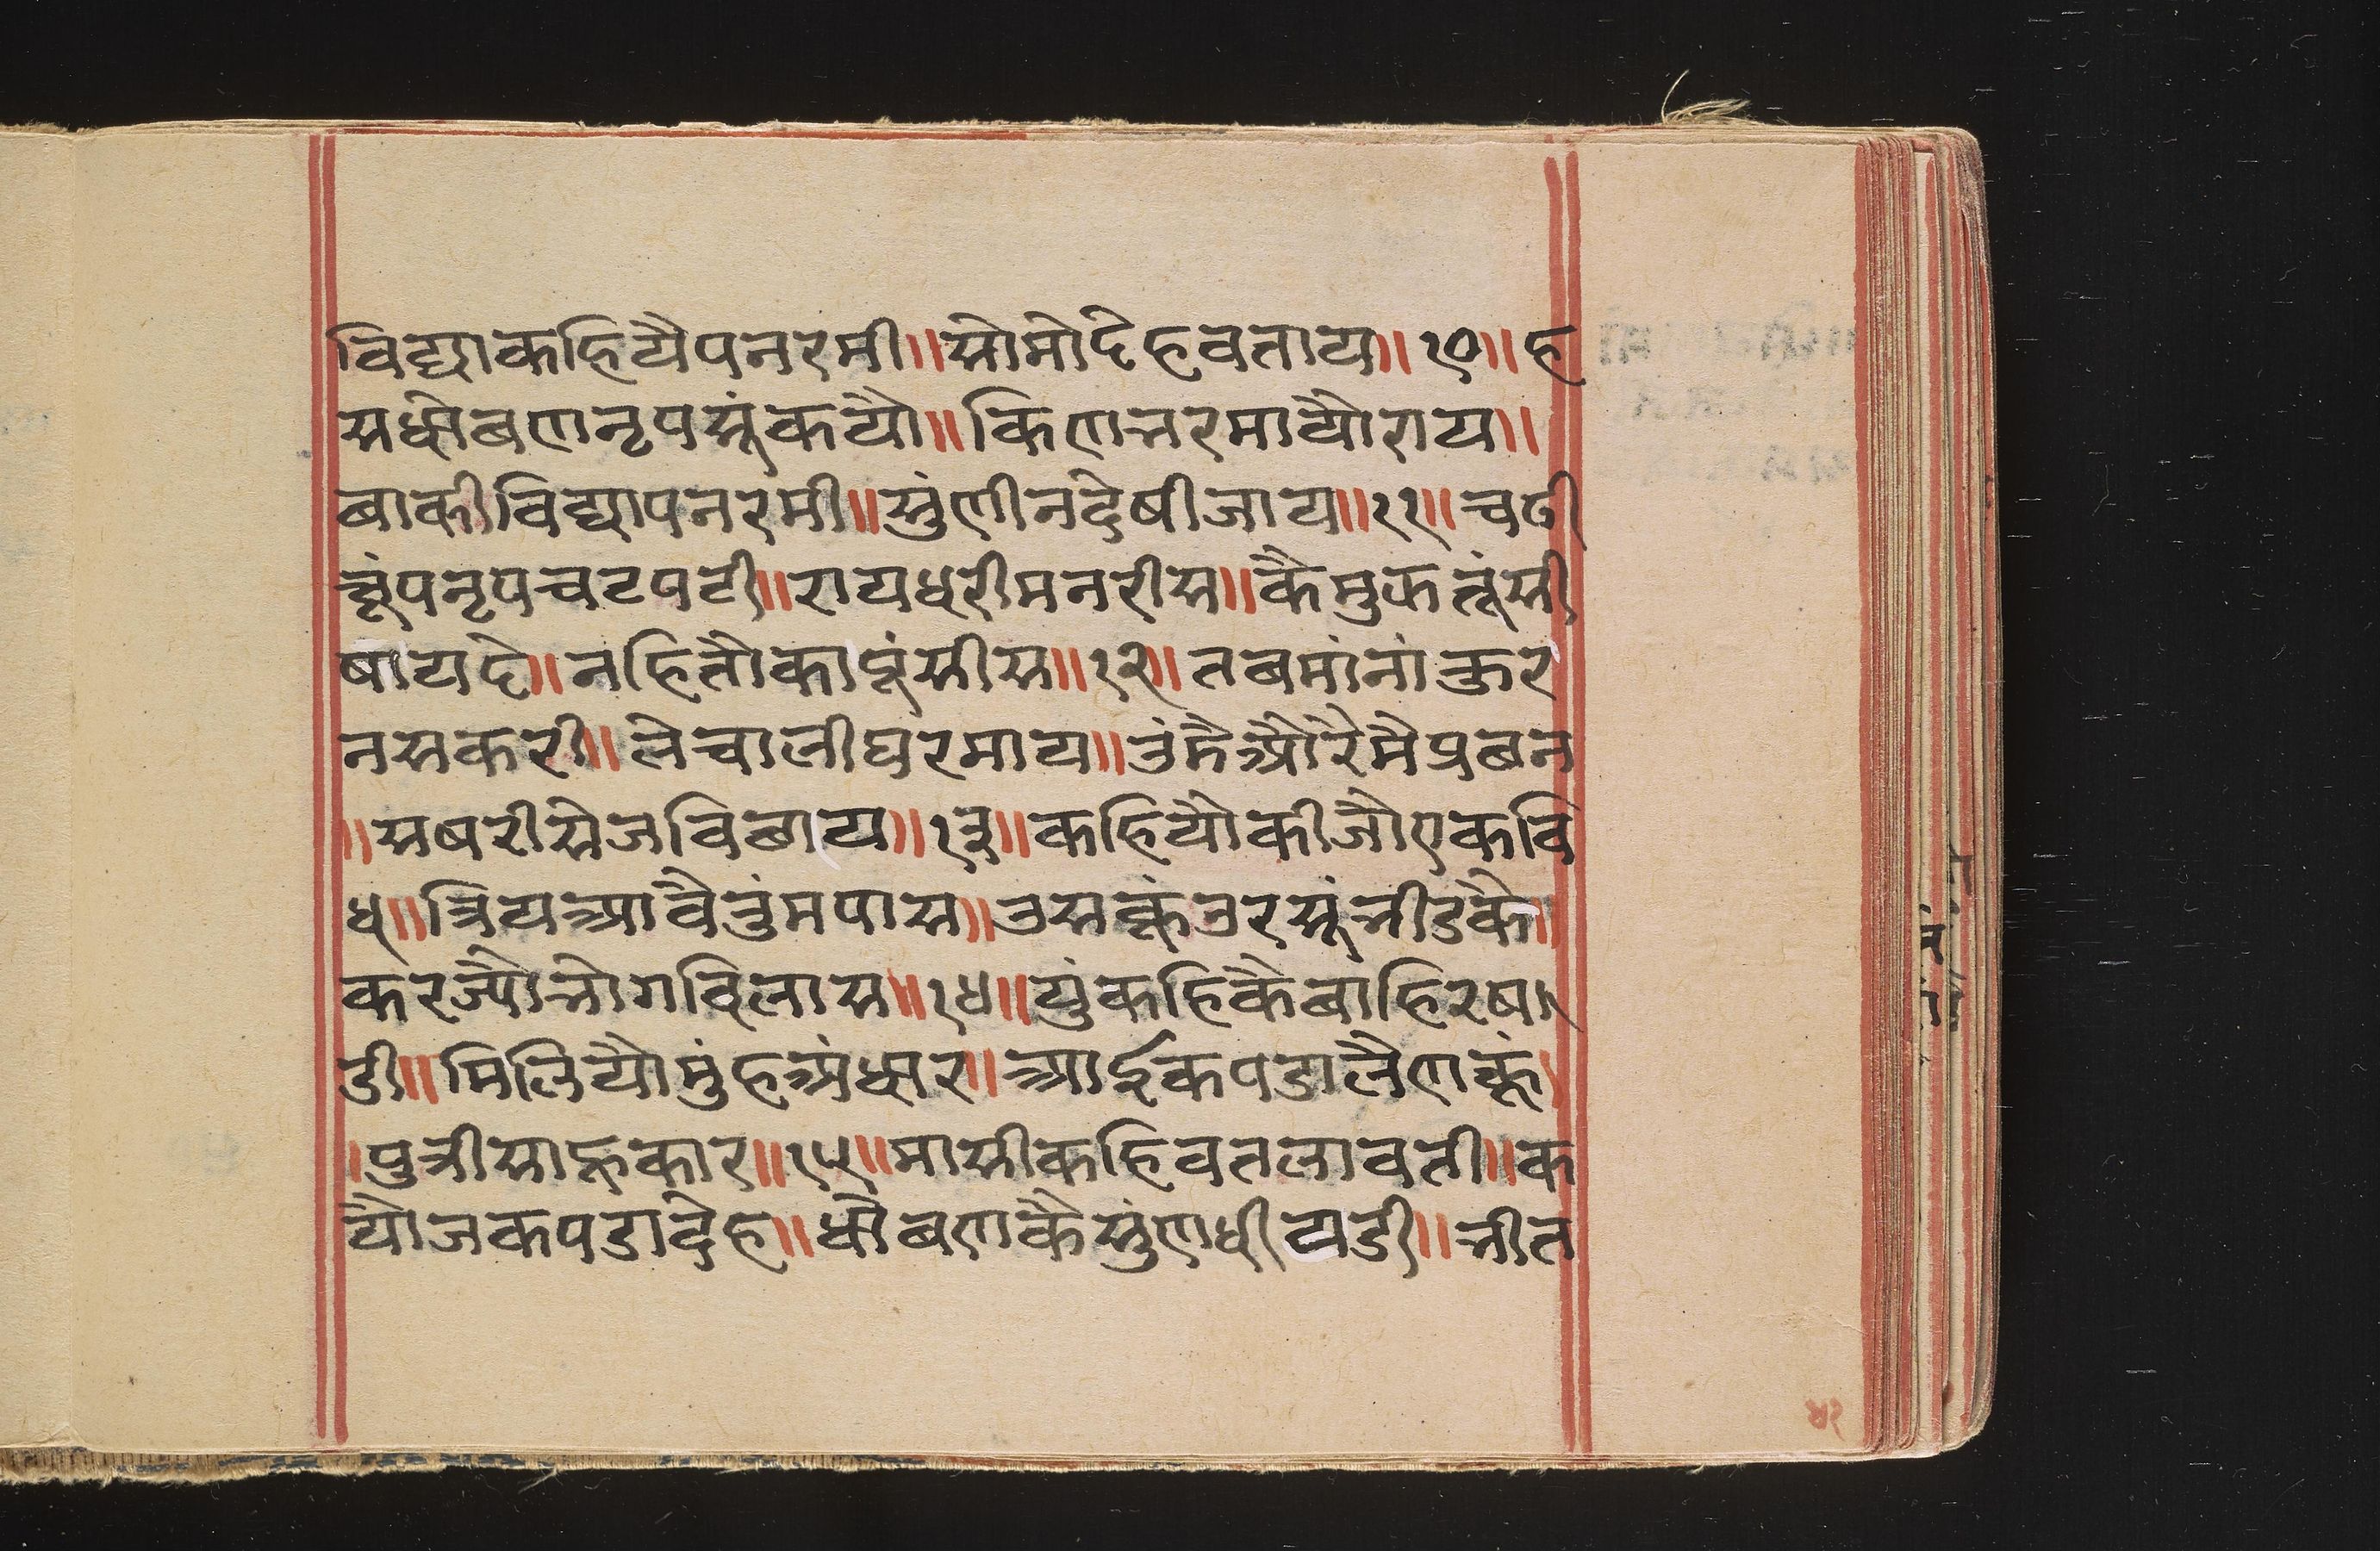 विद्याकहियैपनरमी॥सोमोदेहवताय॥१०॥ह
सधोबणनृपसूंकयौ॥किणभरमायौराय॥
बाकीविद्यापनरमी॥सुंणीनदेषीजाय॥११॥चढी
चूंपनृपचटपटी॥रायधरीमनरीस॥कैमुकतूंसी
षायदे॥नहितौकापूंसीस॥१२॥तबमांनांकुर
नसकरी॥लेचालीघरमाय॥उंमैऔरैमैप्रबन
॥सषरीसेजविछाय॥१३॥कहियौकीजौएकवि
ध॥त्रियआवैतुंमपास॥उसकूंउरसूंभीडकै॥
करज्यौभोगविलास॥१४॥युंकहिकैबाहिरषा
डी॥मिलियौमुंहअंधार॥आईकपडालैणकूं॥
पुत्रीसाहूकार॥१५॥मासीकहिवतलावती॥क
यौजकपडादेह॥धोबणकैसुंणधीयडी॥भीत
४१